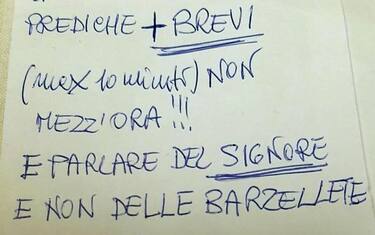 PREDICHE + BREVI
(max 10 minuti) NON
MEZZ'ORA !!!
E PARLARE DEL SIGNORE
E NON DELLE BARZELLETE